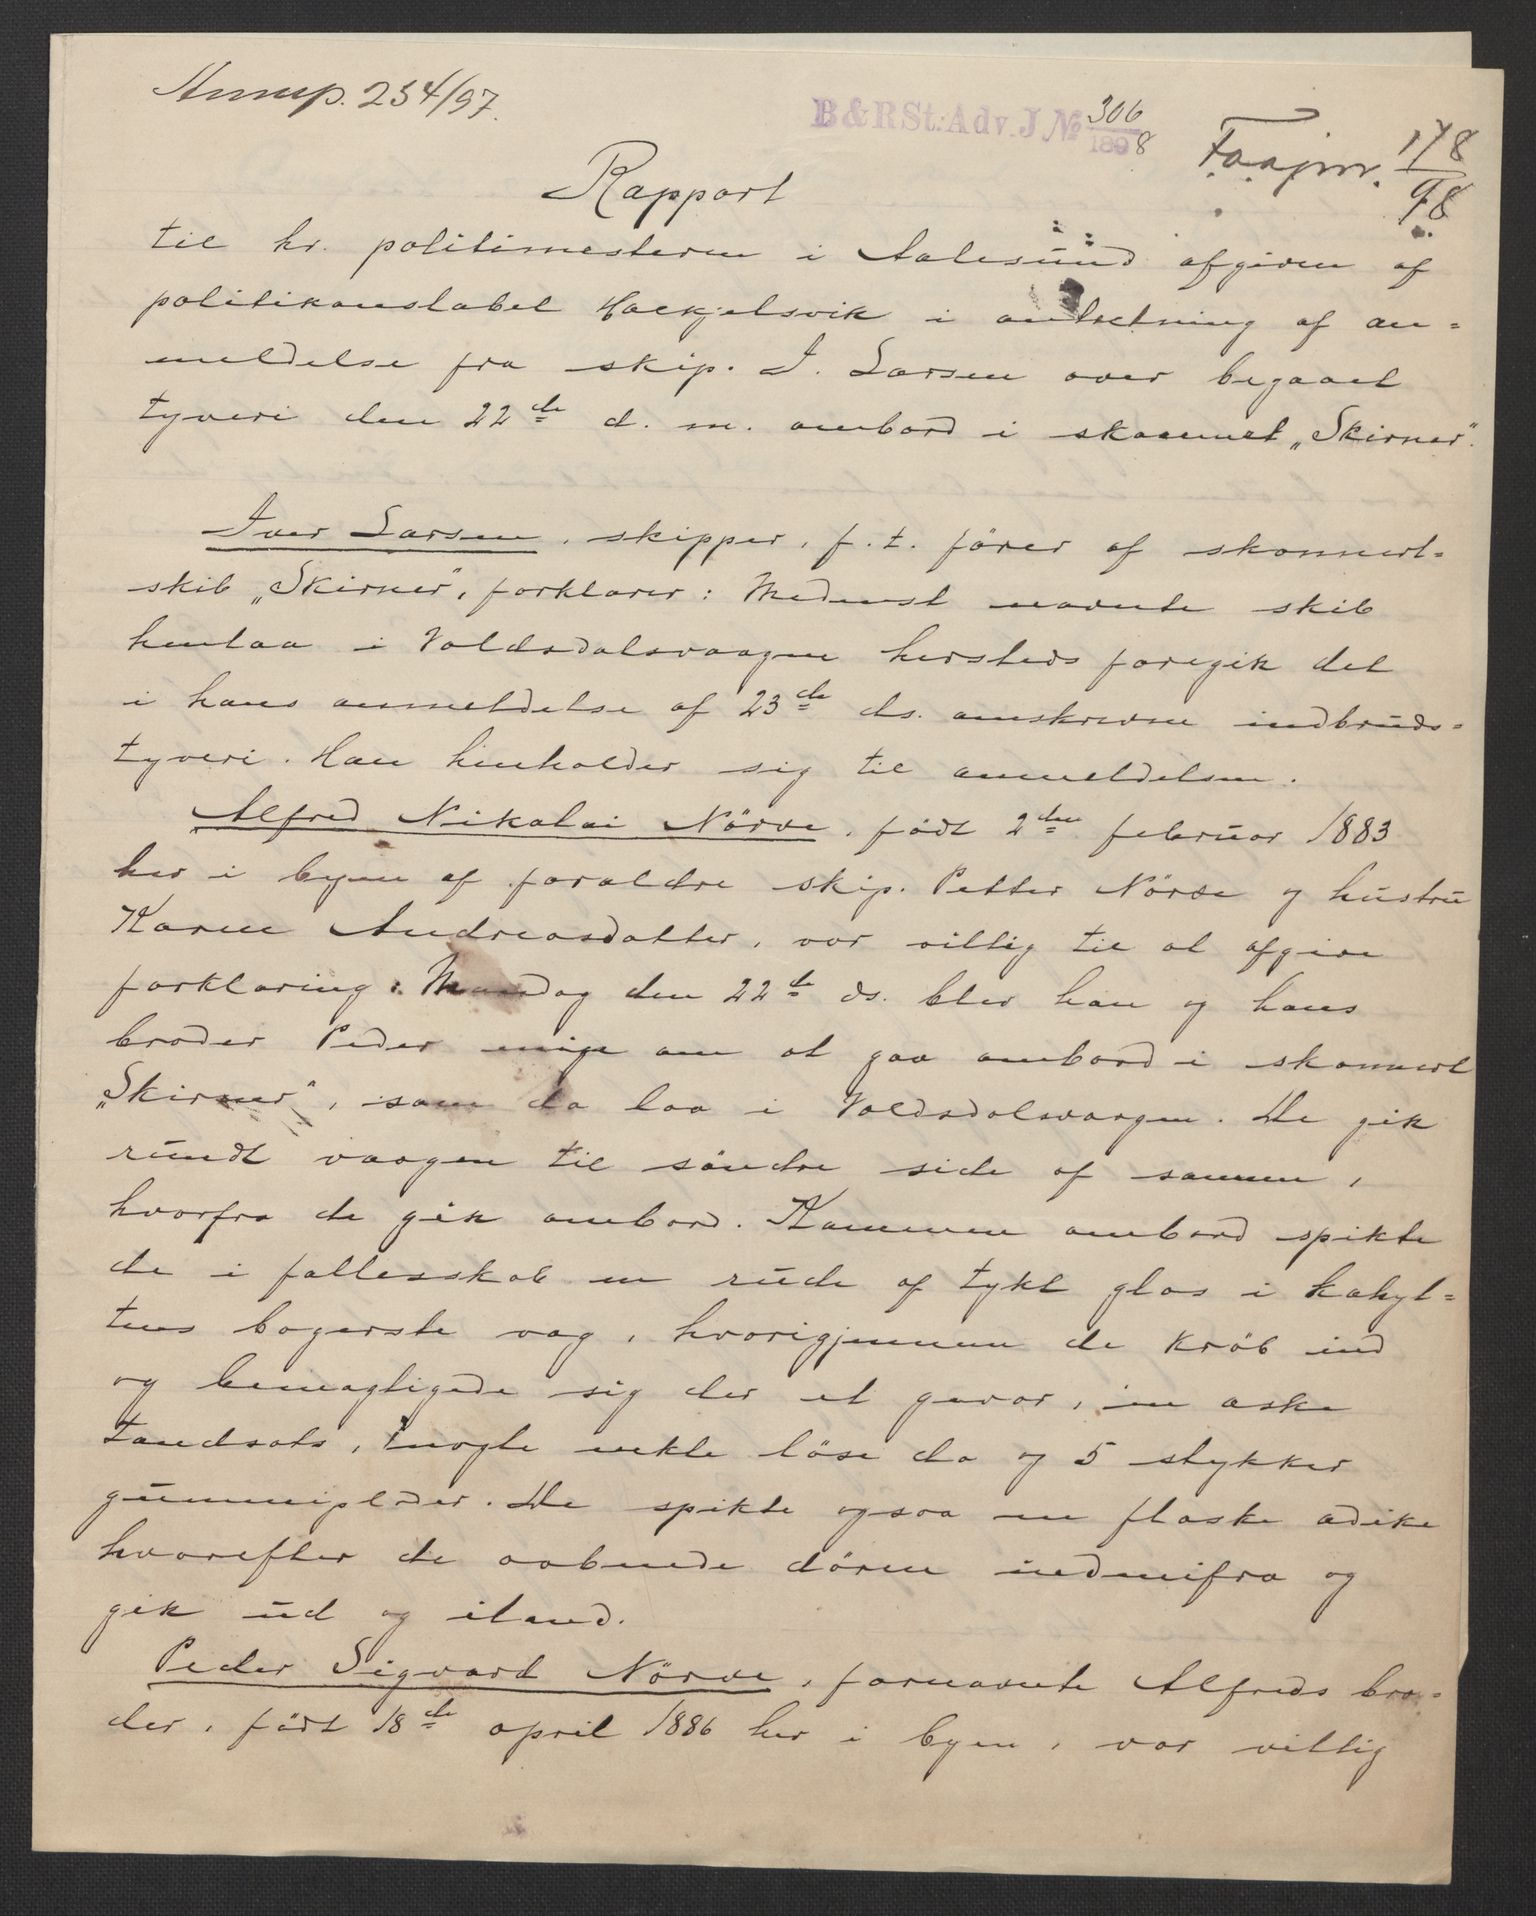 Anmp. 234/97.
B & R St: Adv. J № 306/1898
Faajnr. 178/98
Rapport
til hr. politimesteren i Aalesund afgiven af
politikonstabel Haekjelsvik i anledning af an-
meldelse fra skip. I. Larsen over begaaet
tyveri den 22de d. m. ombord i skonnert „Skirner".
Iver Larsen, skipper, f. t. fører af skonnert-
skib „Skirner", forklarer: Medens nævnte skib
henlaa i Voldsdalsvaagen hersteds foregik det
i hans anmeldelse af 23de ds. omskrevne indbruds-
tyveri. Han henholder sig til anmeldelsen.
Alfred Nikolai Nörve, født 2den februar 1883
her i byen af forældre skip. Petter Nörve og hustru
Karen Andreasdatter, var villig til at afgive
forklaring: Mandag den 22de ds. blev han og hans
broder Peder enige om at gaa ombord i skonnert
„Skirner", som da laa i Voldsdalsvaagen. De gik
rundt vaagen til söndre side af samme,
hvorfra de gik ombord. Kommen ombord spikte
de i fællesskab en rude af tykt glas i kahyt-
tens bagerste væg, hvorigjennem de kröb ind
og bemægtigede sig der et gevær, en æske
tændsats, nogle enkle löse do og 5 stykker
gummiplader. De spikte ogsaa en flaske ædike
hvorefter de aabnede dören indenifra og
gik ud og iland.
Peder Sigvard Nörve, fornævnte Alfreds bro-
der, født 18de april 1886 her i byen, var villig